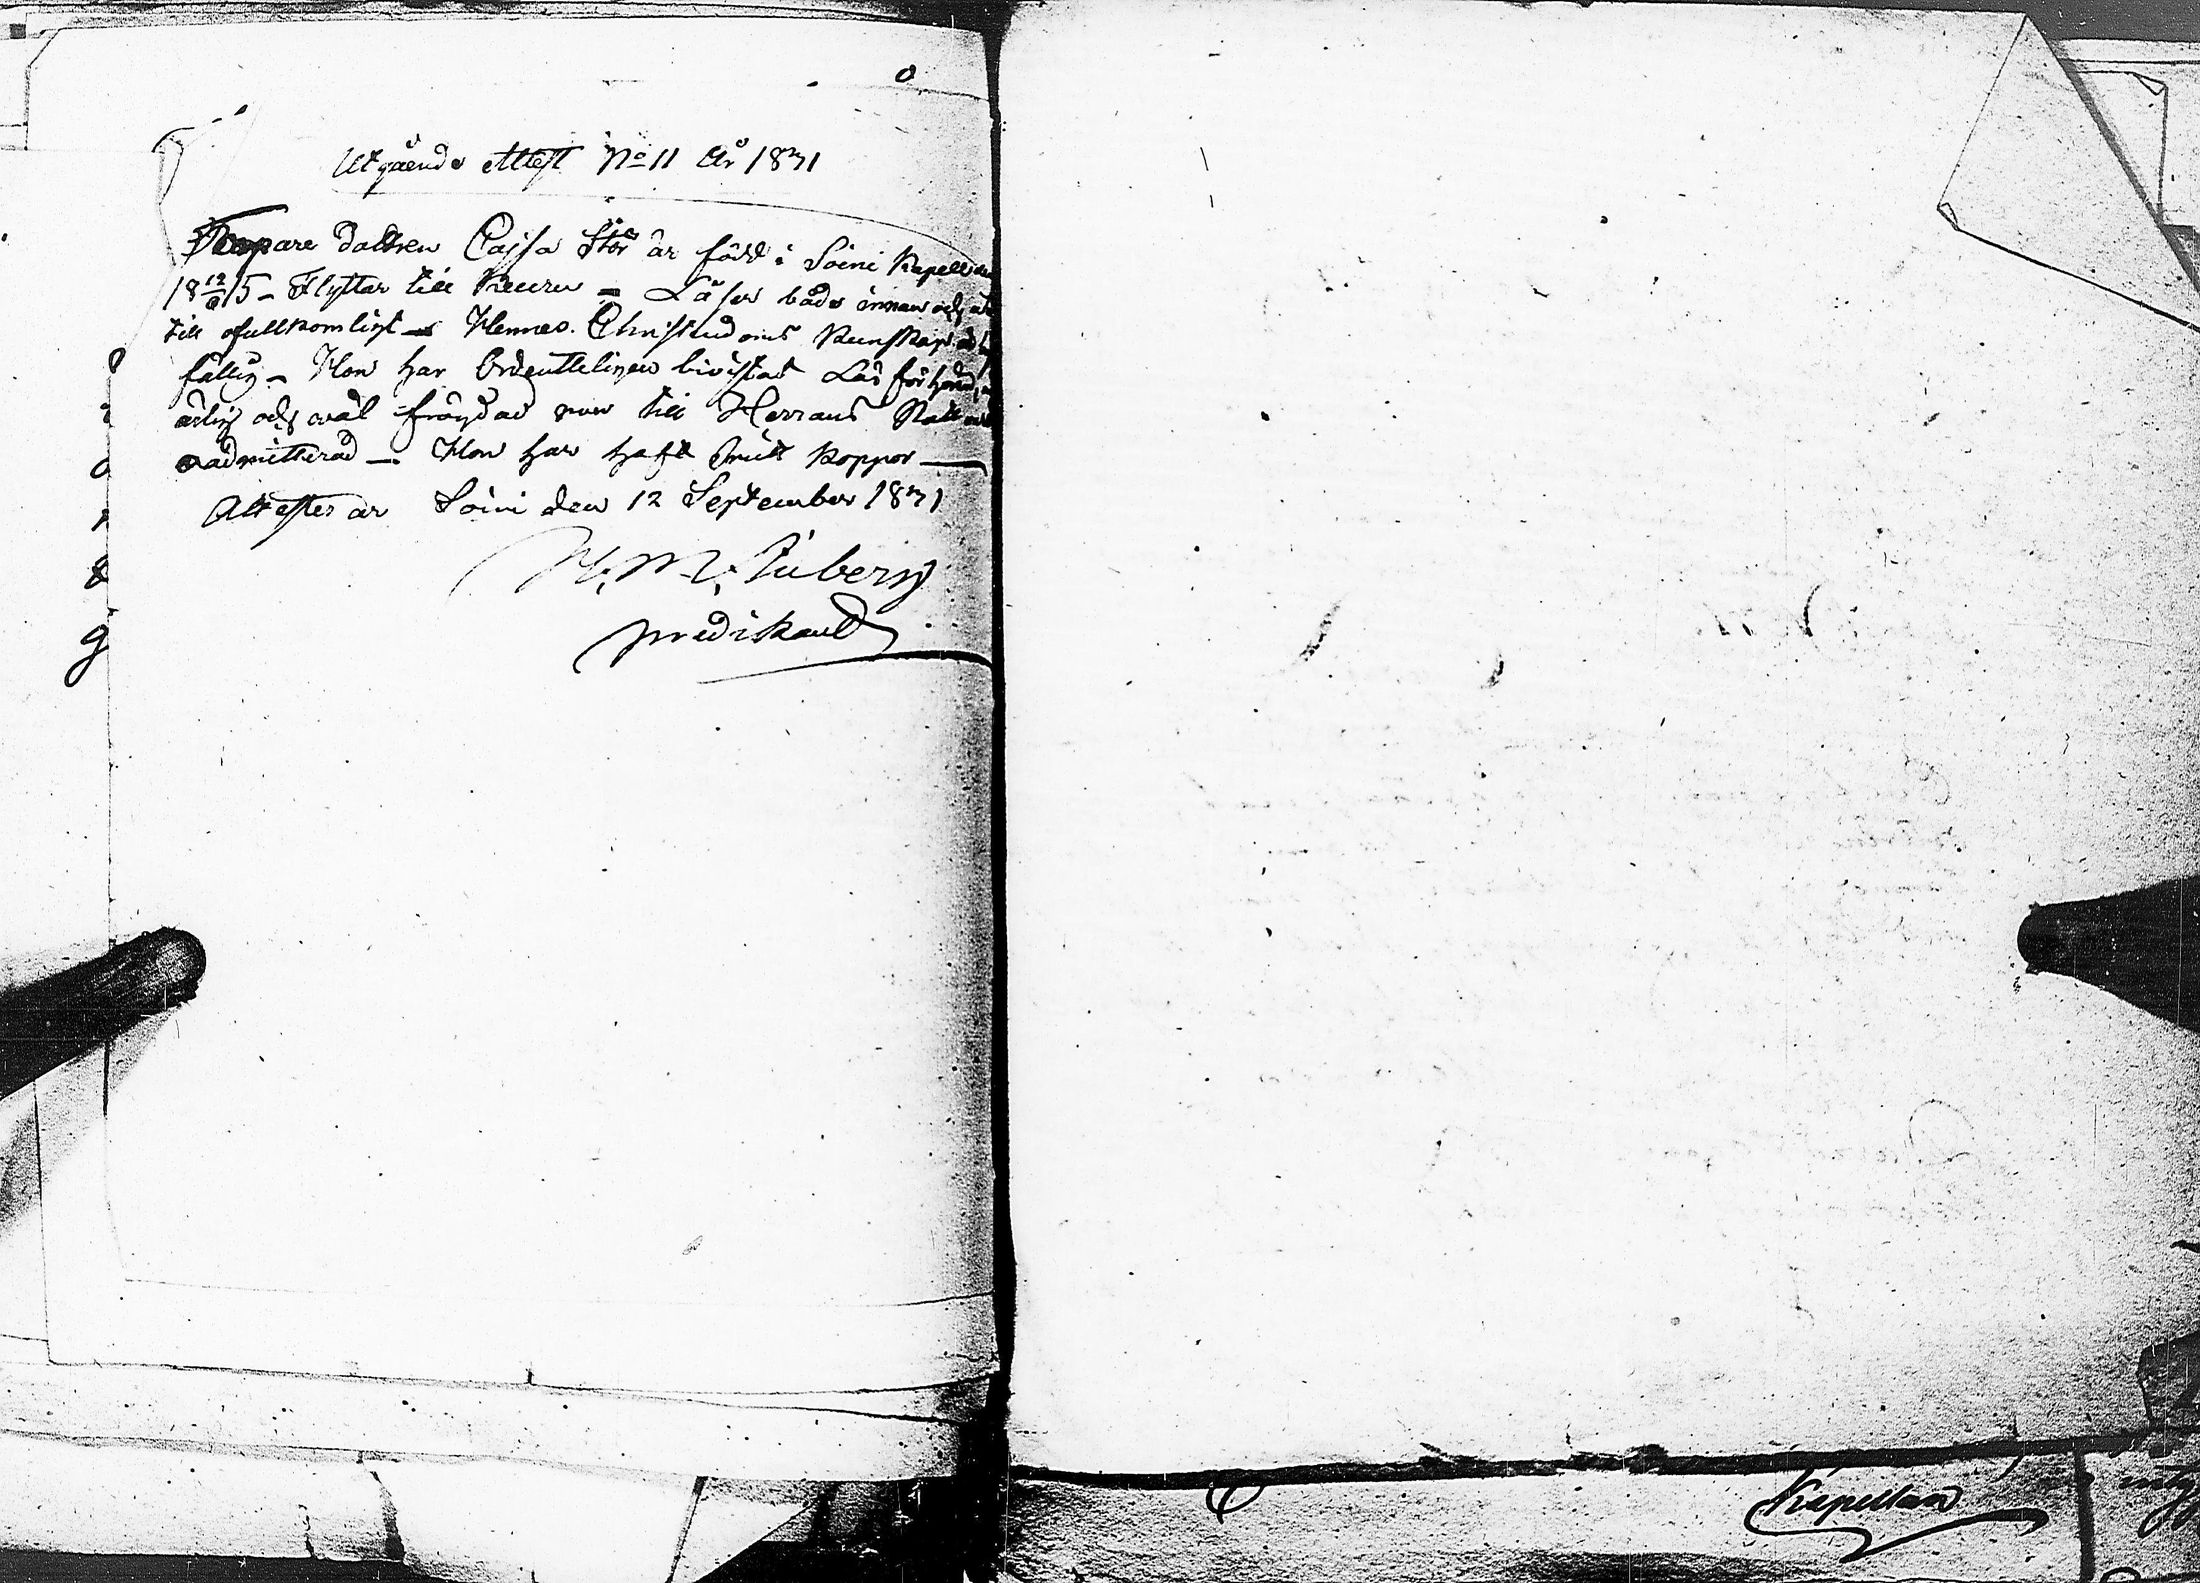 Utgående attest No 11 År 1831
Torpare dottren Cajsa Stor är född i Soini Kapell
18 12/9 15 – Flyttar till Keuru – Läser både innan och
till ofullkomligt – Hennes Christendoms Kunskap
fällig – Hon har Ordentteligen bivistat Läs förhören,
ärlig och wäl frägdad men till Herrans Natt
oadmitterad – Hon har haft Smitt koppor –
Attesterar Soini den 12 September 1831
predikant
Kapellan